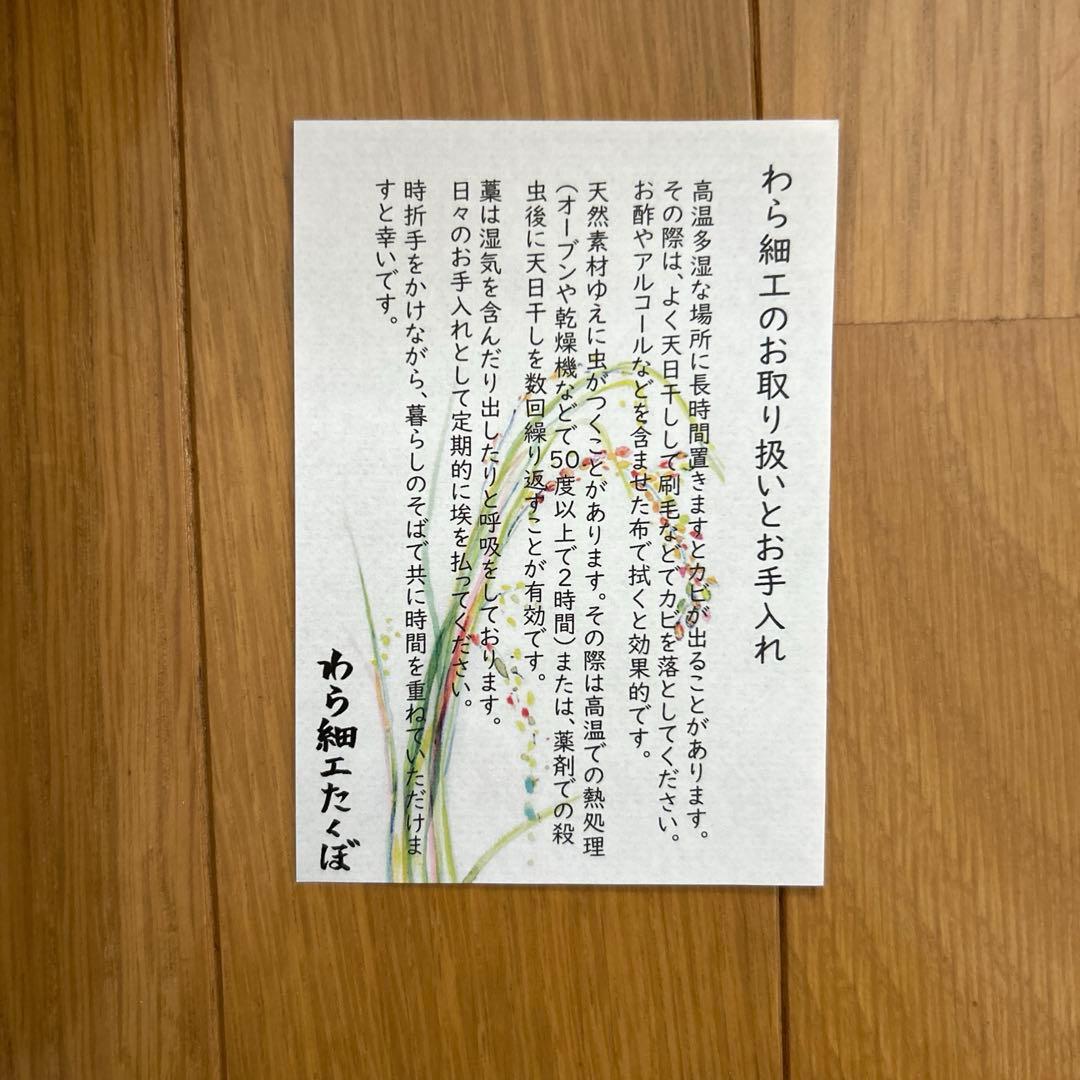 わら細工のお取り扱いとお手入れ
高温多湿な場所に長時間置きますとカビが出ることがあります。
その際は、よく天日干しして刷毛などでカビを落としてください。
お酢やアルコールなどを含ませた布で拭くと効果的です。
天然素材ゆえに虫がつくことがあります。その際は高温での熱処理
（オーブンや乾燥機などで50度以上で2時間）または、薬剤での殺
虫後に天日干しを数回繰り返すことが有効です。
藁は湿気を含んだり出したりと呼吸をしております。
日々のお手入れとして定期的に埃を払ってください。
時折手をかけながら、暮らしのそばで共に時間を重ねていただけま
すと幸いです。
わら細工たくぼ